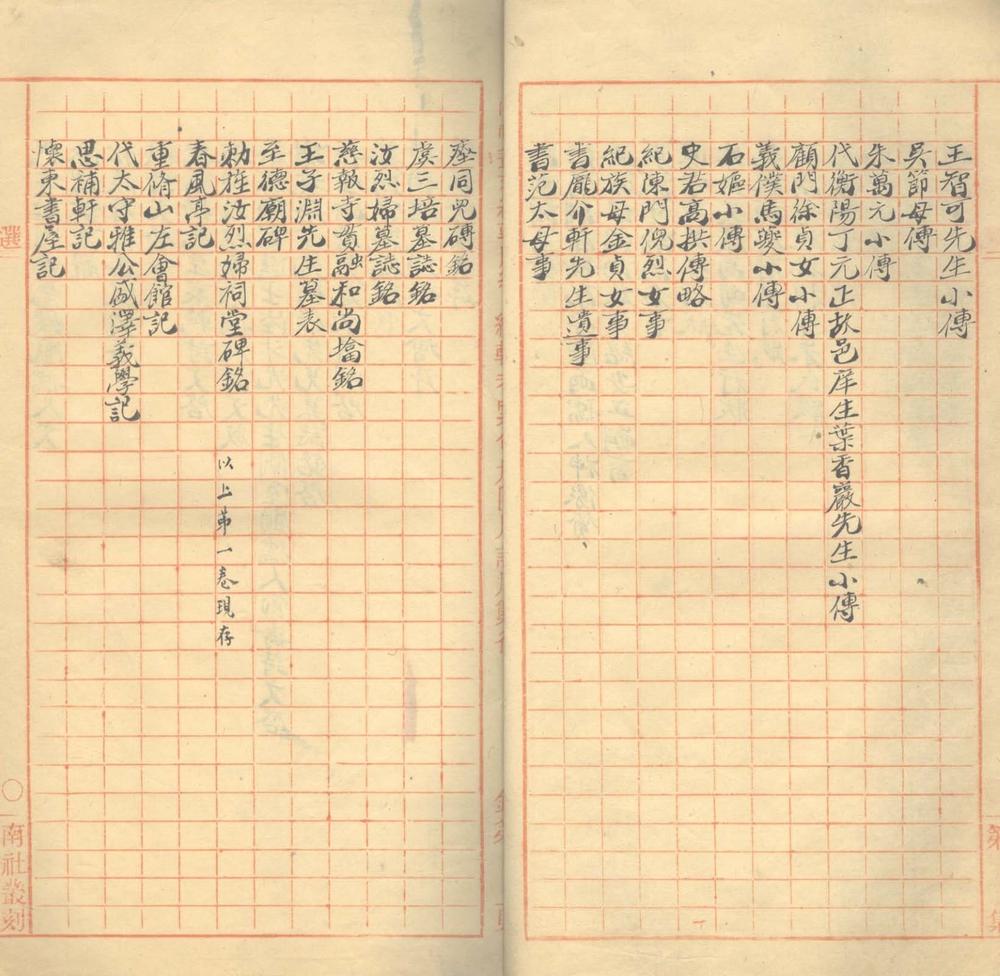 王智可先生小傳
吳節母傳
朱萬元小傳
代衡陽丁元正故邑庠生葉香巖先生小傳
顧門徐貞女小傳
義僕馬夑小傳
石嫗小傳
史君高拱傳略
紀陳門倪烈女事
紀族母金貞女事
書龐介軒先生遺事
書范太母事
瘞同兒磚銘
虞三培墓誌銘
汝烈婦墓誌銘
慈報寺貫融和尚塔銘
王子淵先生墓表
至德廟碑
勅旌汝烈婦祠堂碑銘
以上苐一卷現存
春風亭記
重脩山左會館記
代太守雅公盛澤義學記
思補軒記
懷東書屋記
選
○
南社叢刻
第
集